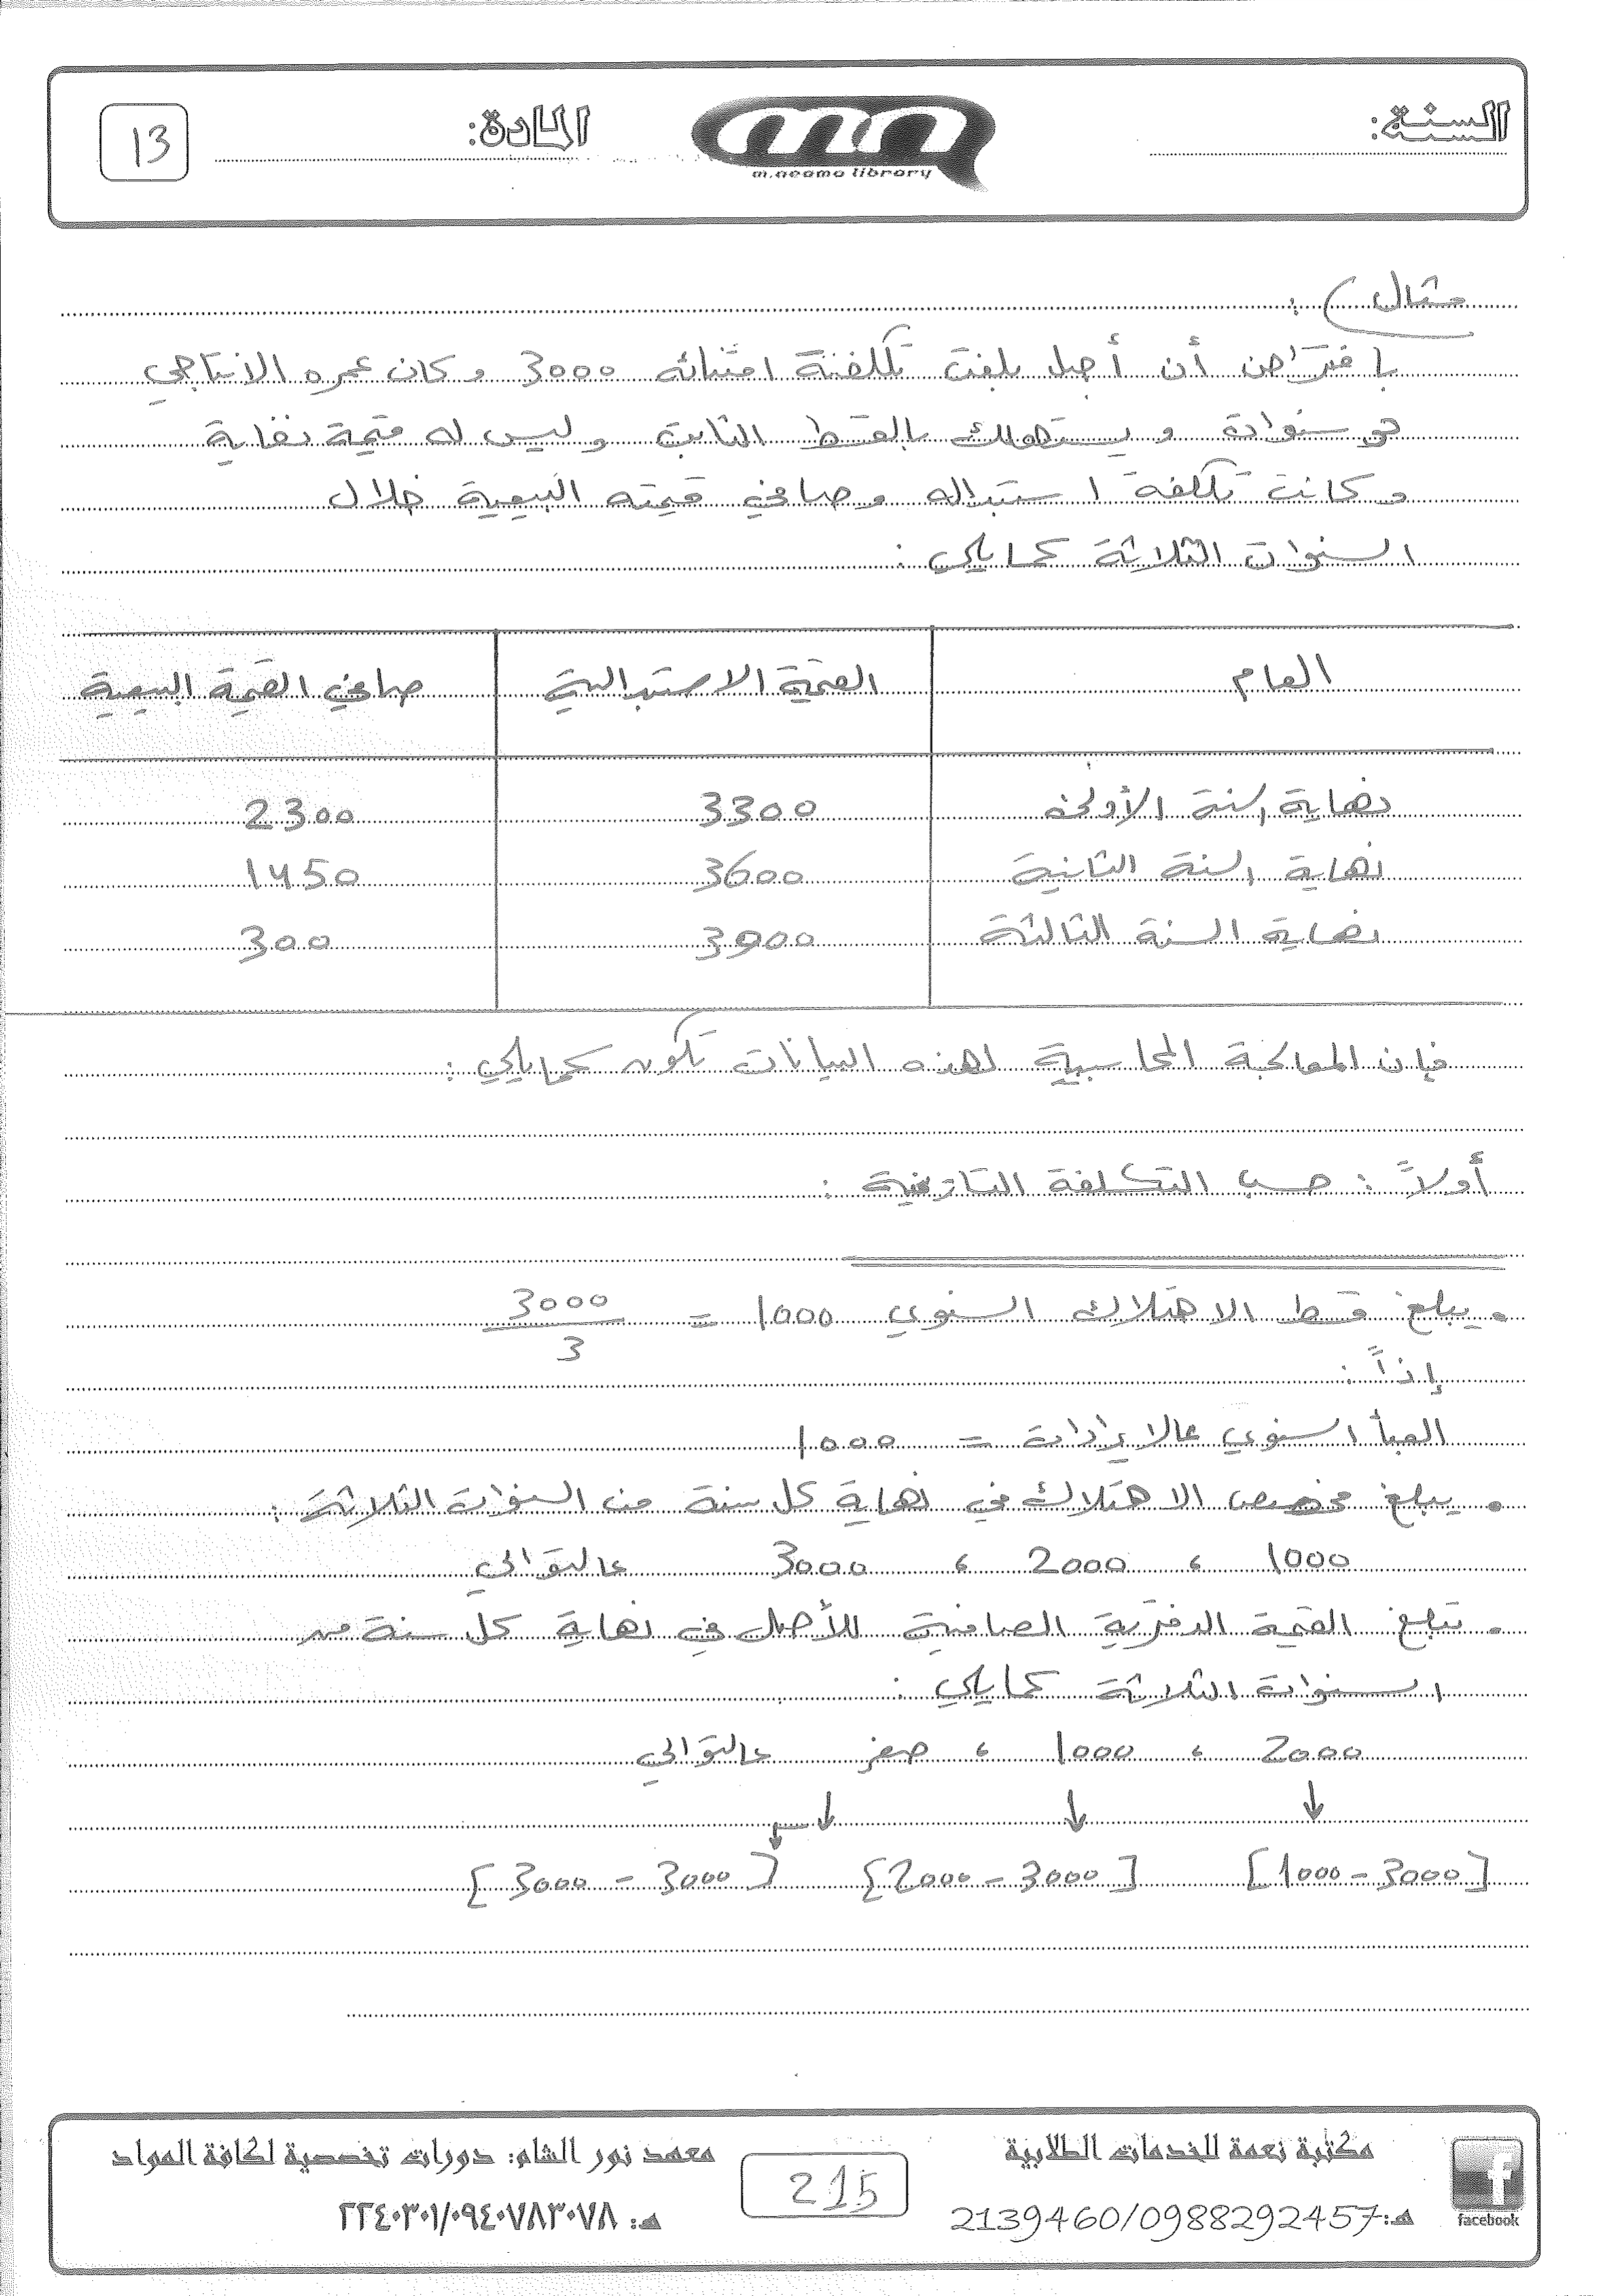 السنة:
المادة:
13
m.neama library
مثال) :
بافتراض أن أصل بلغت تكلفة اقتنائه 3000 وكان عمره الانتاجي
3 سنوات و يستهلك بالقسط الثابت وليس له قيمة نفاية
وكانت تكلفة استبداله وصافي قيمته البيعية خلال
السنوات الثلاثة كمايلي :
العام القيمة الاستبدالية صافي القيمة البيعية
نهاية السنة الأولى 3300 2300
نهاية السنة الثانية 3600 1450
نهاية السنة الثالثة 3900 300
فإن المعالجة المحاسبية لهذه البيانات تكون كمايلي :
أولاً : حسب التكلفة التاريخية :
• يبلغ قسط الاهتلاك السنوي 1000 = 3000 / 3
إذاً :
العبأ السنوي عالايرادات = 1000
• يبلغ مخصص الاهتلاك في نهاية كل سنة من السنوات الثلاثة :
1000 ، 2000 ، 3000 عالتوالي
• تبلغ القيمة الدفترية الصافية للأصل في نهاية كل سنة من
السنوات الثلاثة كمايلي :
2000 ، 1000 ، صفر عالتوالي
[3000 - 1000] [3000 - 2000] [3000 - 3000]
مكتبة نعمة للخدمات الطلابية
هـ: 2139460/0988292457
facebook
215
معهد نور الشام: دورات تخصصية لكافة المواد
هـ: ٢٢٤٠٣٠١/٠٩٤٠٧٨٣٠٧٨